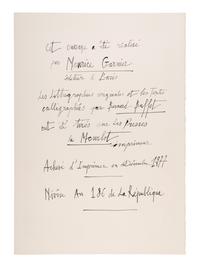 Cet ouvrage a été réalisé
par Maurice Garnier
éditeur à Paris
Les Lithographies originales et les textes
calligraphiés par Bernard Buffet
ont été tirés sur les Presses
de Mourlot
imprimeur
Achevé d'Imprimer en décembre 1977
Nivôse An 186 de La République